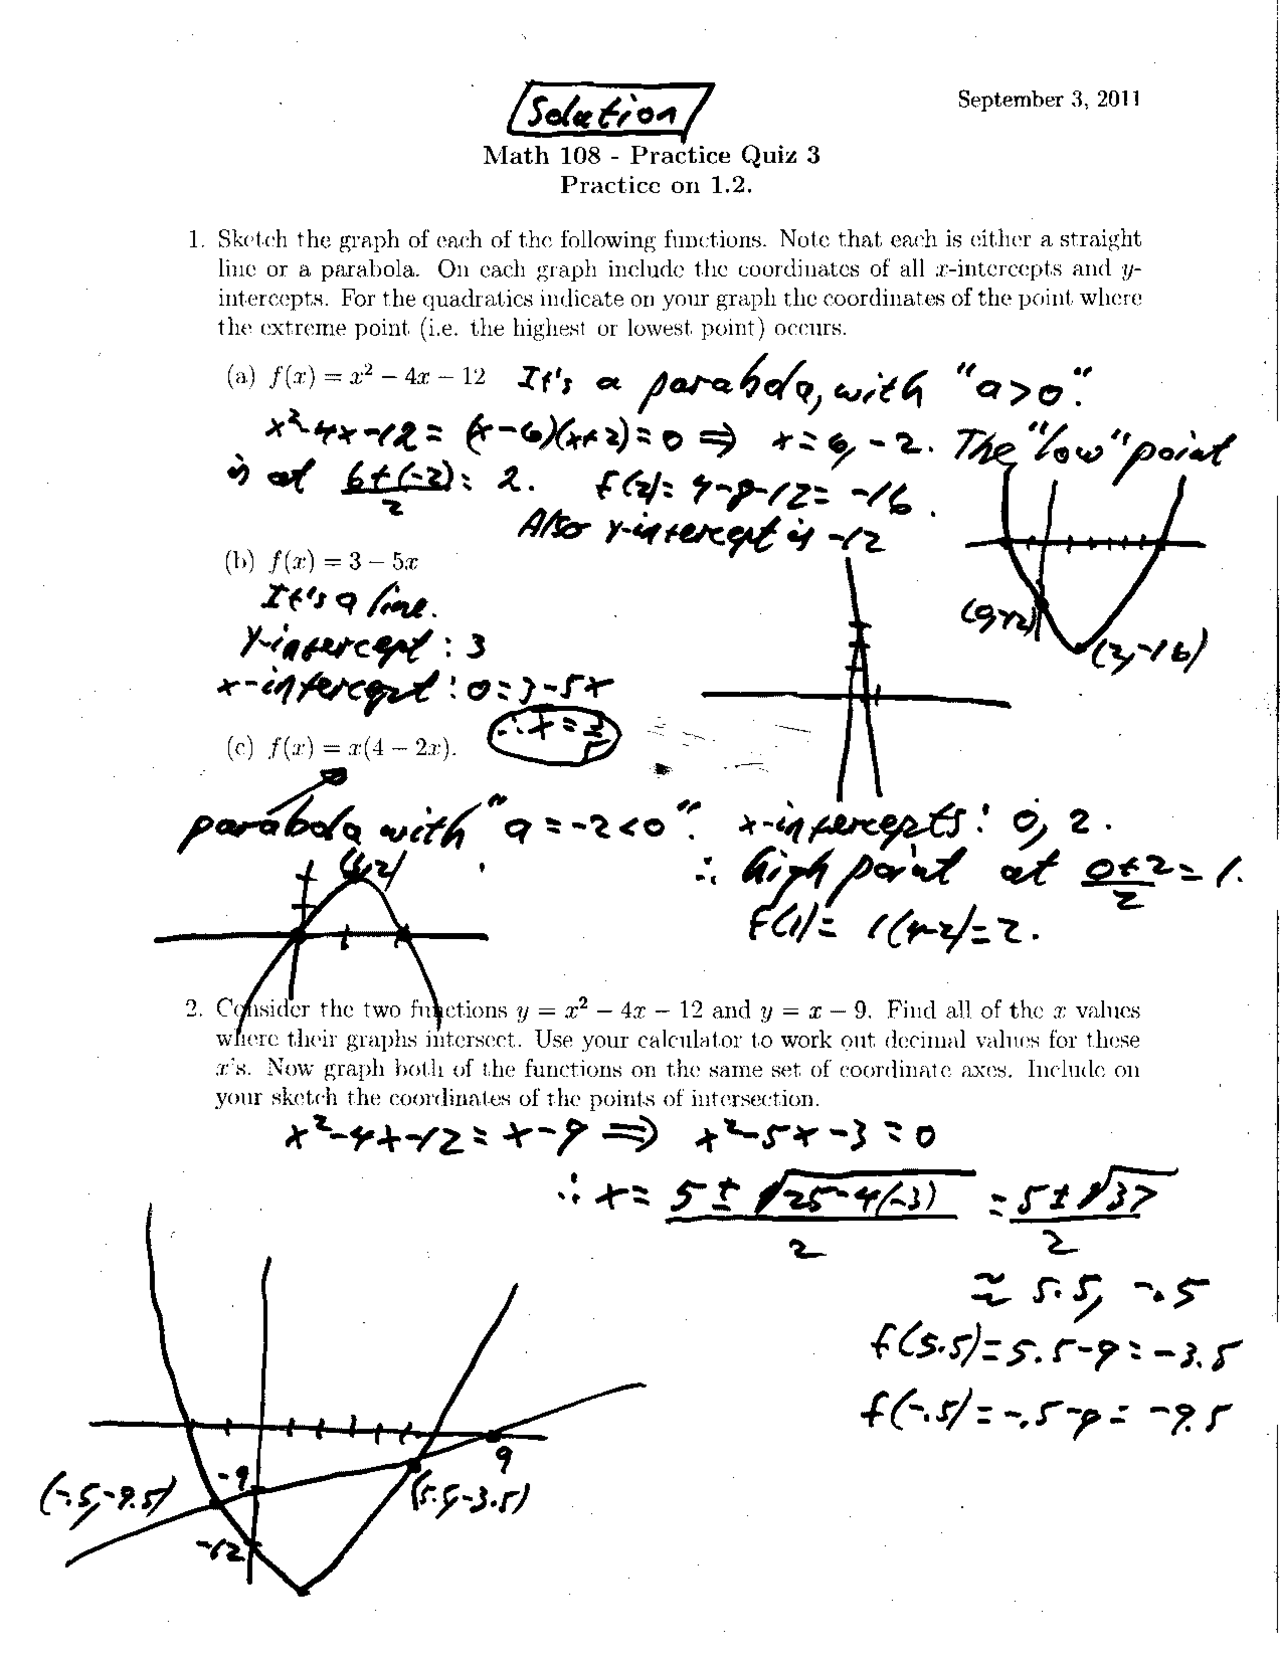 Solution
September 3, 2011
Math 108 - Practice Quiz 3
Practice on 1.2.
1. Sketch the graph of each of the following functions. Note that each is either a straight
line or a parabola. On each graph include the coordinates of all x-intercepts and y-
intercepts. For the quadratics indicate on your graph the coordinates of the point where
the extreme point (i.e. the highest or lowest point) occurs.
(a) f(x) = x² − 4x − 12 It's a parabola, with "a>0".
x²-4x-12 = (x-6)(x+2)=0 ⇒ x=6, -2. The "low" point
is at (6+(-2))/2 = 2. f(2)= 4-8-12= -16.
Also y-intercept is -12
(b) f(x) = 3 − 5x
It's a line.
(0,-12)
(2,-16)
y-intercept : 3
x-intercept : 0=3-5x
∴ x = 3/5
(c) f(x) = x(4 − 2x).
parabola with "a=-2<0". x-intercepts: 0, 2.
(1,2)
∴ high point at (0+2)/2 = 1.
f(1)= 1(4-2)=2.
2. Consider the two functions y = x² − 4x − 12 and y = x − 9. Find all of the x values
where their graphs intersect. Use your calculator to work out decimal values for these
x's. Now graph both of the functions on the same set of coordinate axes. Include on
your sketch the coordinates of the points of intersection.
x²-4x-12 = x-9 ⇒ x²-5x-3 = 0
∴ x = (5 ± √(25-4(-3)))/2 = (5±√37)/2
≈ 5.5, -.5
f(5.5)=5.5-9=-3.5
f(-.5)=-.5-9= -9.5
9
-9
(-.5,-9.5)
(5.5,-3.5)
-12